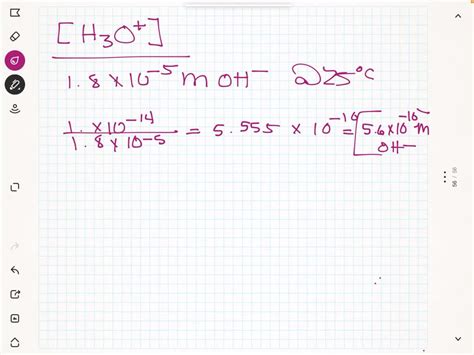 [H₃O⁺]
1.8 × 10⁻⁵ M OH⁻ @25°C
1. × 10⁻¹⁴ / 1.8 × 10⁻⁵ = 5.555 × 10⁻¹⁰ = 5.6 × 10⁻¹⁰ M
OH⁻